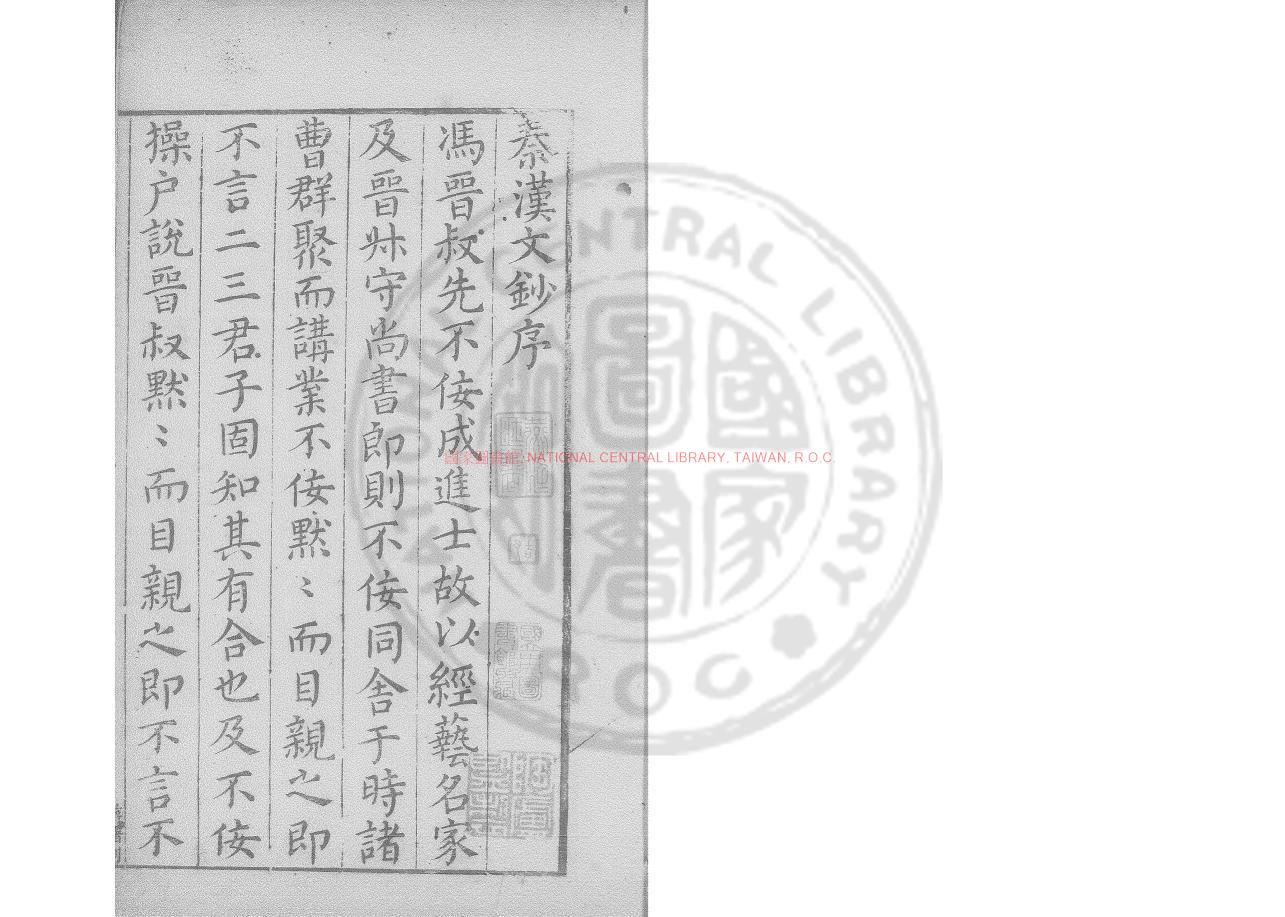 秦漢文鈔序
馮晉叔先不佞成進士故以經藝名家
及晉叔守尚書郎則不佞同舍于時諸
曹群聚而講業不佞默〻而目親之即
不言二三君子固知其有合也及不佞
操戶說晉叔默〻而目親之即不言不
國家圖書館, NATIONAL CENTRAL LIBRARY, TAIWAN, R.O.C.
NATIONAL CENTRAL LIBRARY
R O C
國家圖書